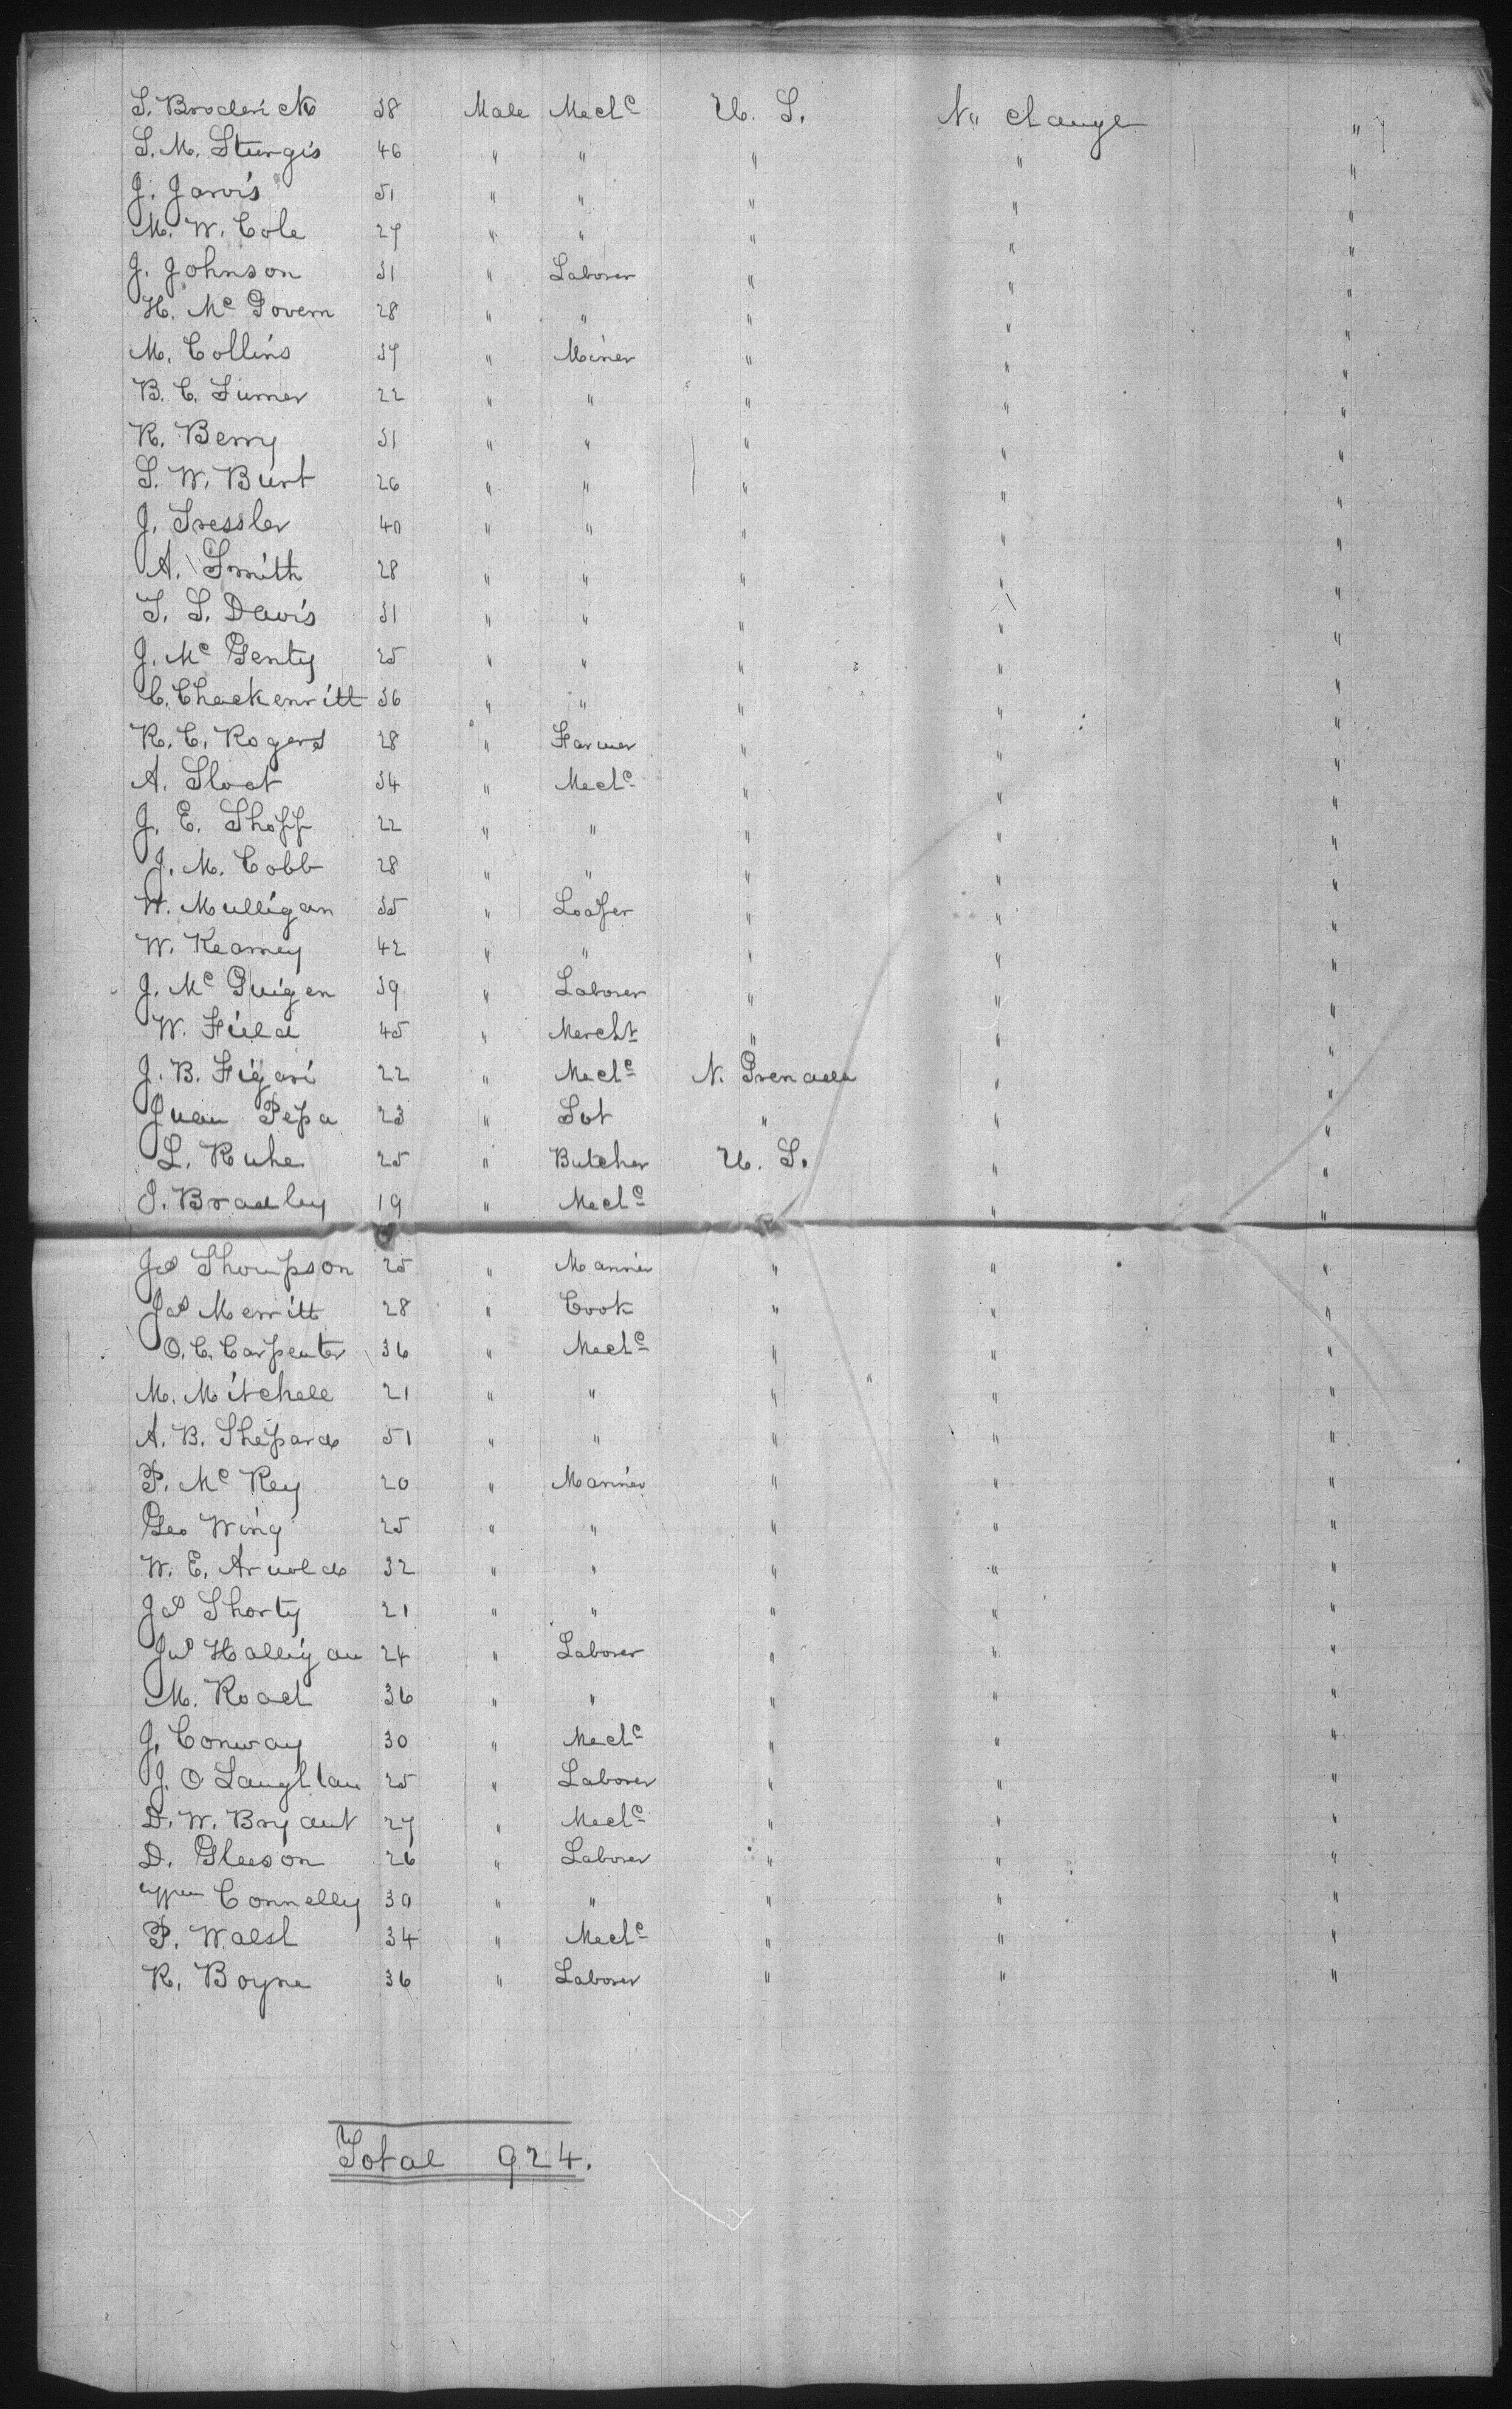 S. Broderick 38 Male Mech^c U. S. No change "
S. M. Sturgis 46 " " " " "
J. Jarvis 51 " " " " "
M. W. Cole 27 " " " " "
J. Johnson 31 " Laborer " " "
H. M^c Govern 28 " " " " "
M. Collins 37 " Miner " " "
B. C. Turner 22 " " " " "
R. Berry 31 " " " " "
S. W. Burt 26 " " " " "
J. Tressler 40 " " " " "
A. Smith 28 " " " " "
T. S. Davis 31 " " " " "
J. M^c Genty 25 " " " " "
C. Chackenritt 36 " " " " "
R. C. Rogers 28 " Farmer " " "
A. Sloat 34 " Mech^c " " "
J. E. Shoff 22 " " " " "
J. M. Cobb 28 " " " " "
W. Mulligan 35 " Loafer " " "
W. Kearney 42 " " " " "
J. M^c Guigen 39 " Laborer " " "
W. Field 45 " Mercht " " "
J. B. Figari 22 " Mech^c N. Grenada " "
Juan Pepa 23 " Sot " " "
L. Ruhe 25 " Butcher U. S. " "
S. Bradley 19 " Mech^c " "
Js Thompson 25 " Mariner " " "
Js Merritt 28 " Cook " " "
O. C. Carpenter 36 " Mech^c " " "
M. Mitchell 21 " " " " "
A. B. Shepard 51 " " " " "
P. M^c Key 20 " Mariner " " "
Geo Wing 25 " " " " "
W. E. Arnold 32 " " " " "
Js Shorty 21 " " " " "
Jno Halligan 24 " Laborer " " "
M. Roach 36 " " " " "
J. Conway 30 " Mech^c " " "
J. O Laughlan 25 " Laborer " " "
D. W. Bryant 27 " Mech^c " " "
D. Gleeson 26 " Laborer " " "
Wm Connelly 30 " " " " "
P. Walsh 34 " Mech^c " " "
R. Boyne 36 " Laborer " " "
Total 924.